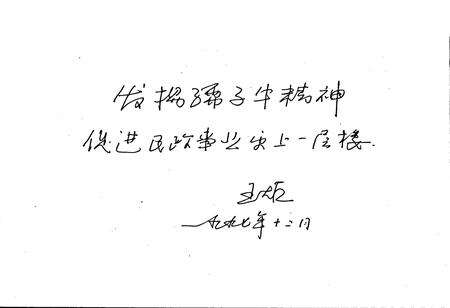 发扬孺子牛精神
促进民政事业更上一层楼.
王炬
一九九七年十二月